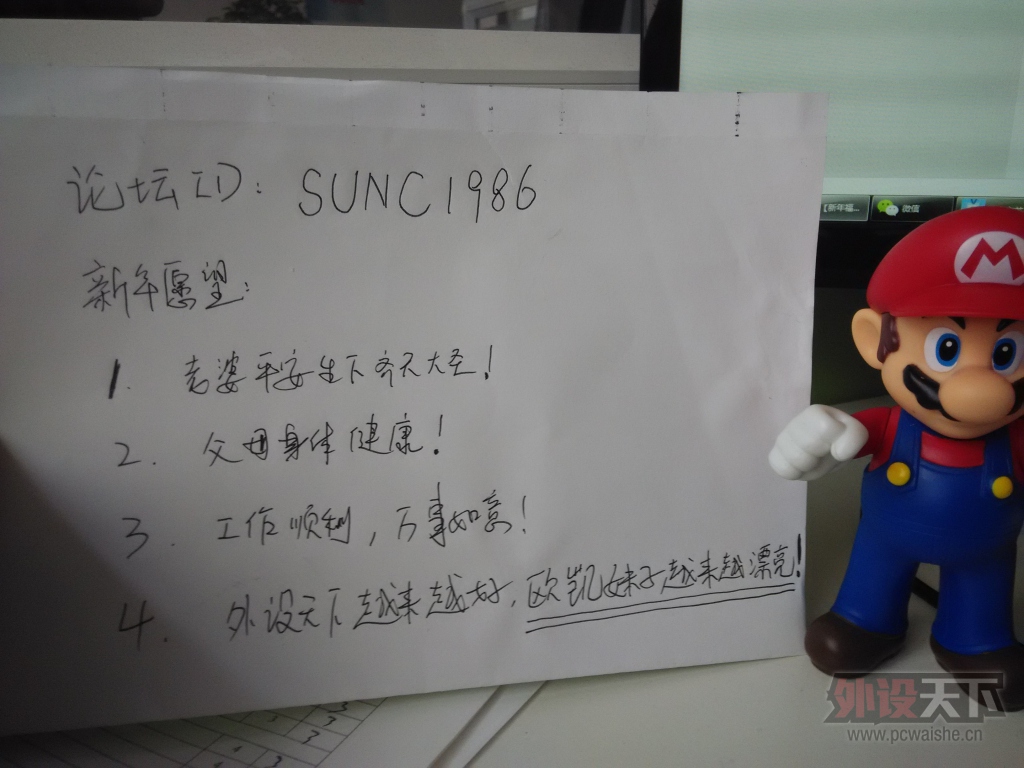 论坛ID: SUNC1986
新年愿望:
1. 老婆平安生下齐天大圣!
2. 父母身体健康!
3. 工作顺利,万事如意!
4. 外设天下越来越好,欧凯妹子越来越漂亮!
【新年福...
微信
M
外设天下
www.pcwaishe.cn